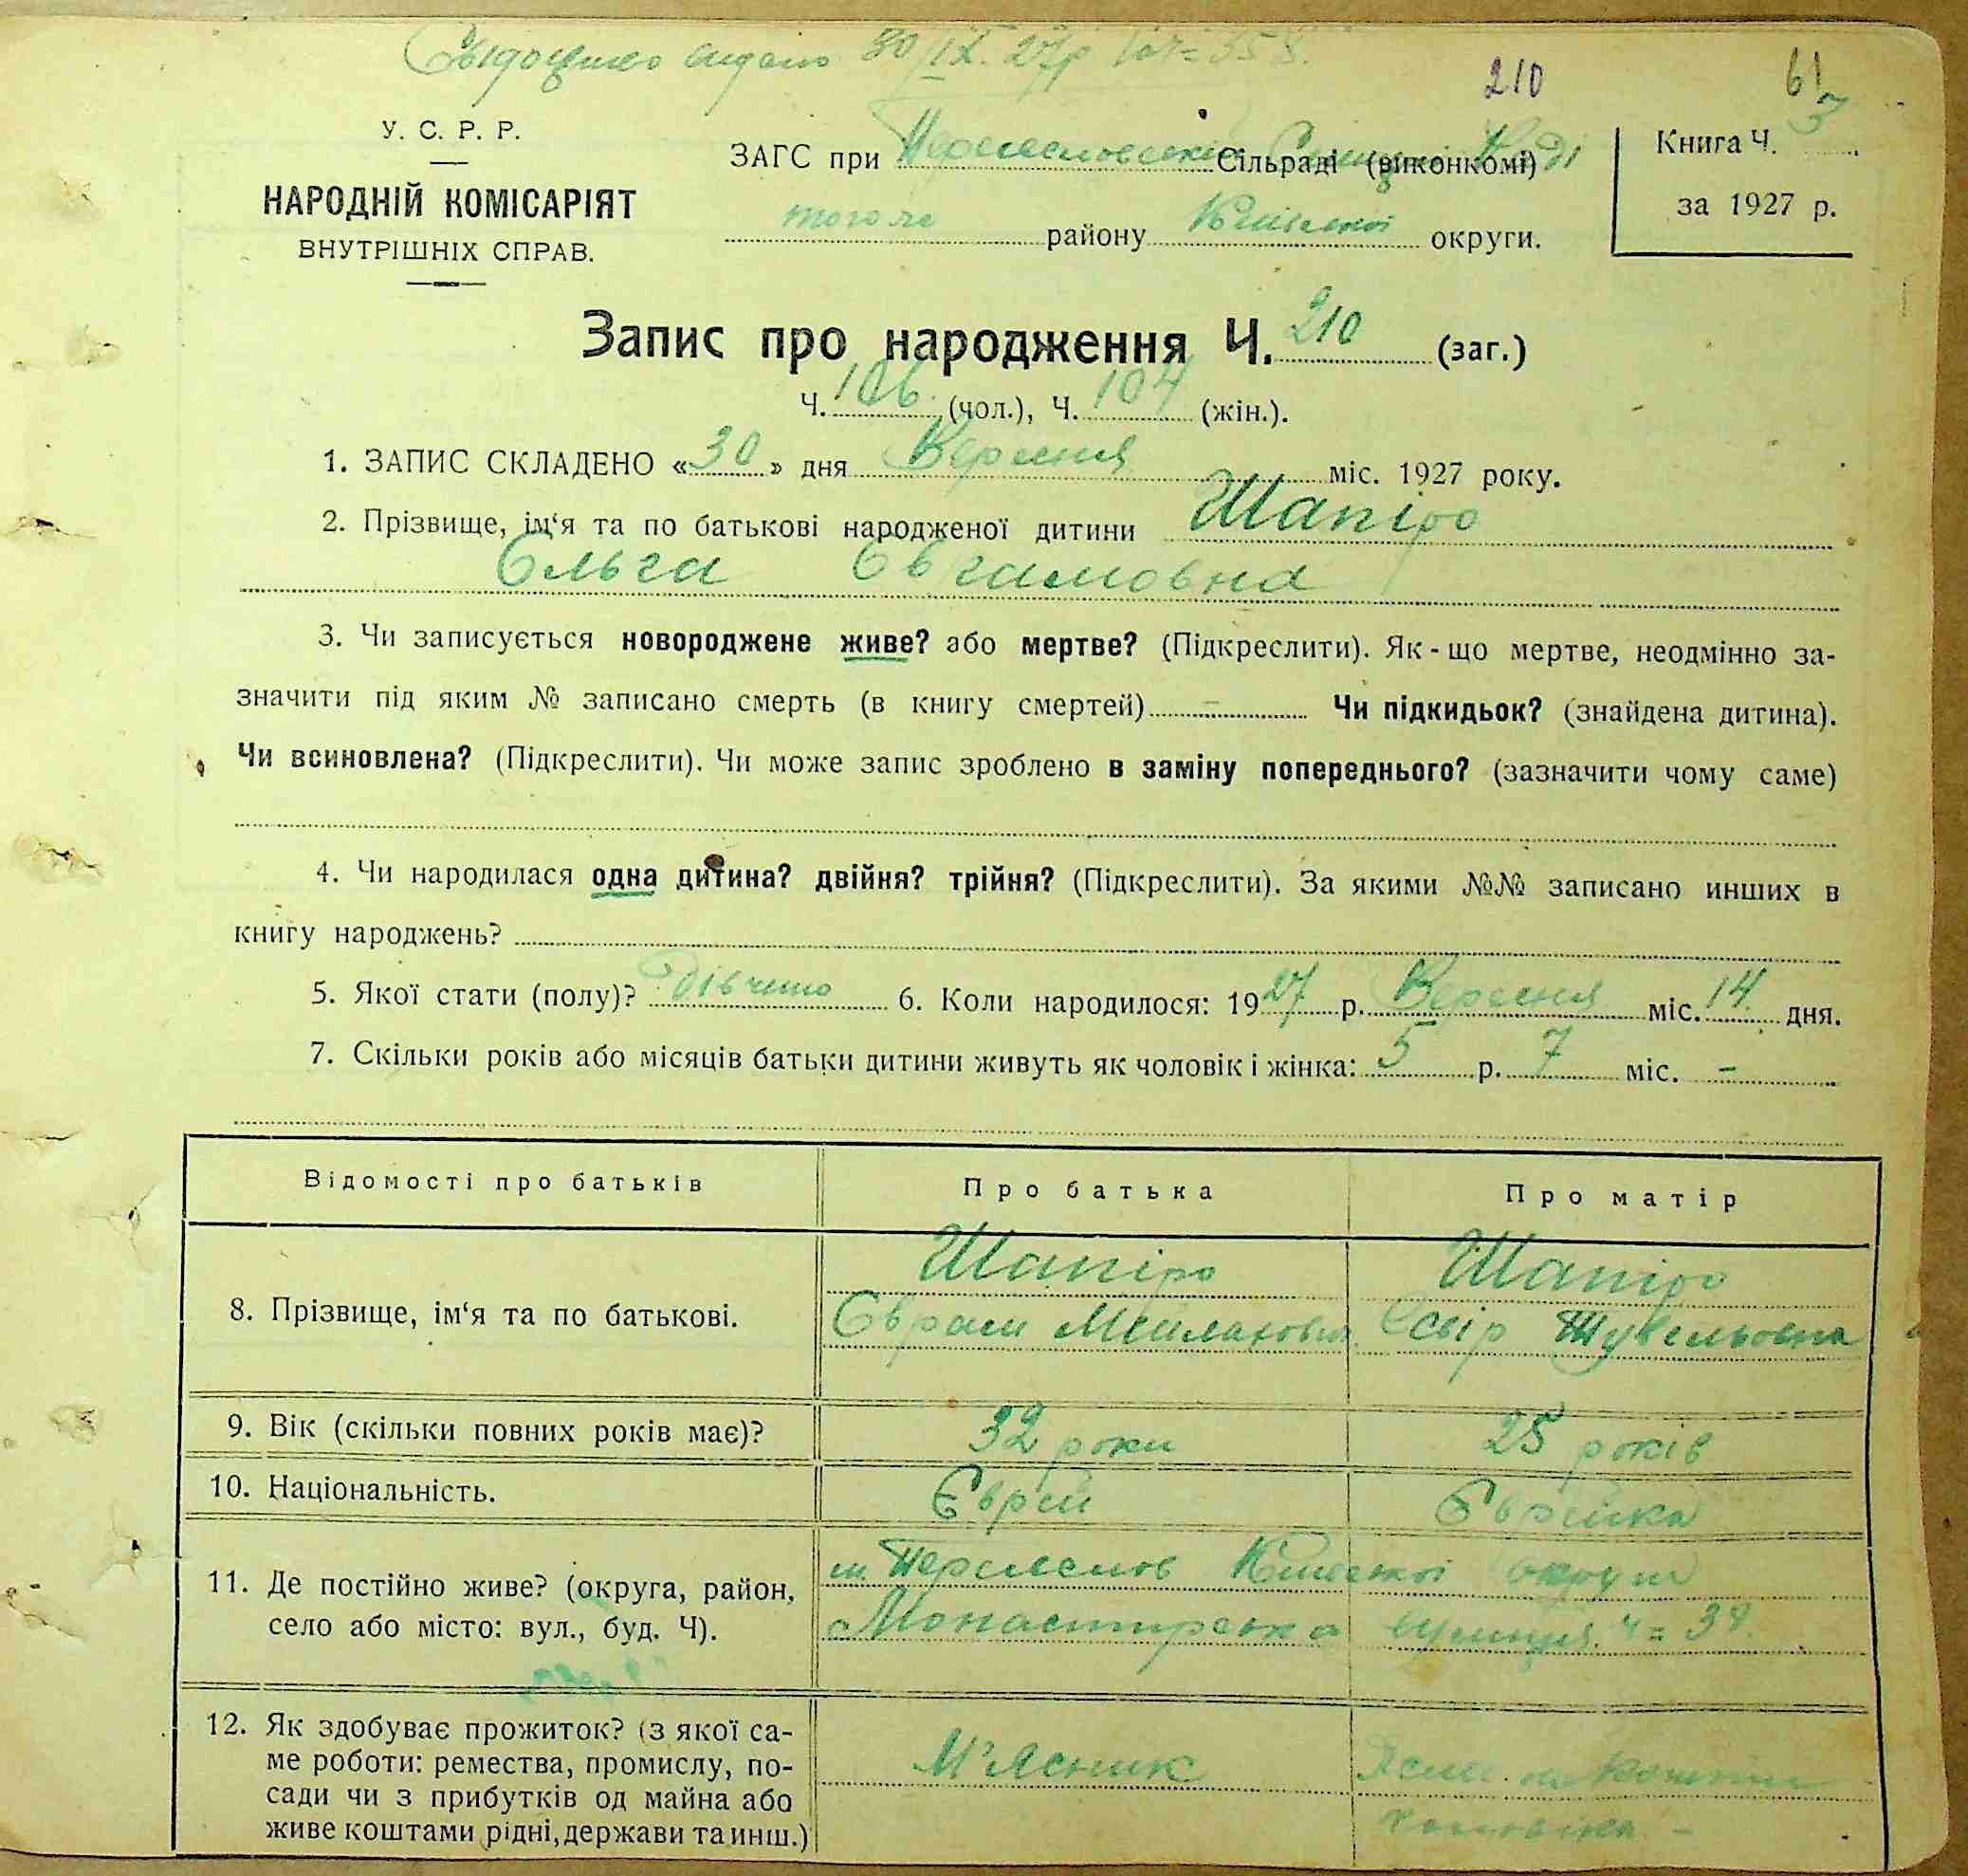 видано 30/IX. 27р
210
61
У. С. Р. Р.
НАРОДНІЙ КОМІСАРІЯТ
ВНУТРІШНІХ СПРАВ.
ЗАГС при Сільраді (виконкомі)
того же району Київської округи.
Книга Ч. 3
за 1927 р.
Запис про народження Ч. 210 (заг.)
Ч. 106 (чол.), Ч. 104 (жін.).
1. ЗАПИС СКЛАДЕНО «30» дня Вересня міс. 1927 року.
2. Прізвище, ім‘я та по батькові народженої дитини Шапіро
Ольга
3. Чи записується новороджене живе? або мертве? (Підкреслити). Як-що мертве, неодмінно за-
значити під яким № записано смерть (в книгу смертей) – Чи підкидьок? (знайдена дитина).
Чи всиновлена? (Підкреслити). Чи може запис зроблено в заміну попереднього? (зазначити чому саме)
4. Чи народилася одна дитина? двійня? трійня? (Підкреслити). За якими №№ записано инших в
книгу народжень?
5. Якої стати (полу)? 6. Коли народилося: 1927 р. Вересня міс. 14 дня.
7. Скільки років або місяців батьки дитини живуть як чоловік і жінка: 5 р. 7 міс. –
Відомості про батьків Про батька Про матір
8. Прізвище, ім‘я та по батькові. Шапіро Шапіро
Єврам
9. Вік (скільки повних років має)? 32 роки 25 років
10. Національність. Єврей Єврейка
11. Де постійно живе? (округа, район,
село або місто: вул., буд. Ч).
м. Київської округи
Монастирська вулиця
12. Як здобуває прожиток? (з якої са-
ме роботи: ремества, промислу, по-
сади чи з прибутків од майна або
живе коштами рідні, держави та инш.)
М’ясник
на кошти
чоловіка –